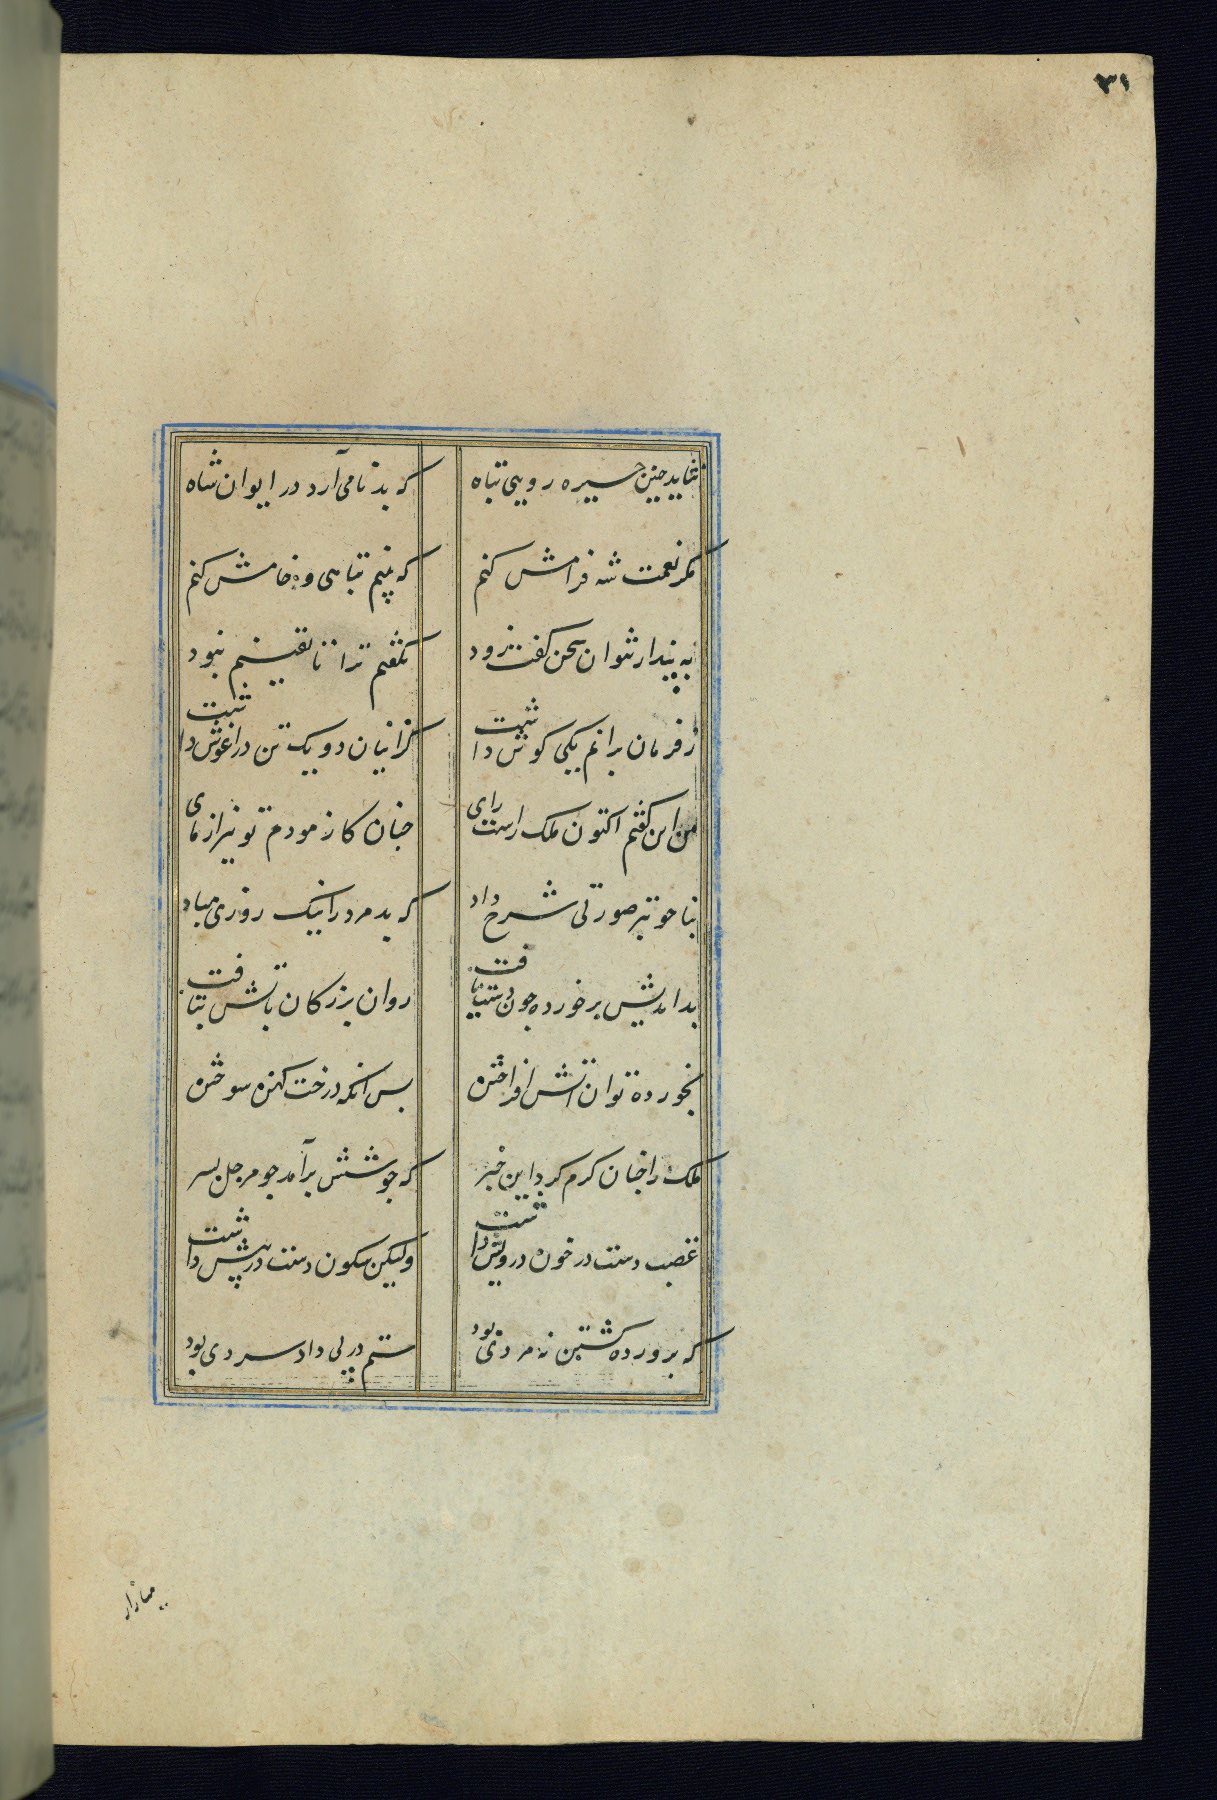 ۳۱
نشاید چنین خیره رویی تباه
که بدنامی آرد در ایوان شاه
مگر نعمت شه فرامش کنم
که بینم تباهی و خامش کنم
به پندار نتوان سخن گفت زود
نگفتم ترا تا یقینم نبود
ز فرمان برانم یکی کوش داشت
کز اینان دو یک تن در اغوش داشت
من این گفتم اکنون ملک راست رای
چنان کازمودم تو نیز ازمای
بناخوبتر صورتی شرح داد
که بد مرد را نیک روزی مباد
بداندیش بر خورده چون دست یافت
روان بزرکان باتش بتافت
بخورده توان اتش افراختن
پس انکه درخت کهن سوختن
ملک را چنان کرم کرد این خبر
که جوشش برآمد چو مرجل بسر
غضب دست در خون درویش داشت
ولیکن سکون دست در پیش داشت
که پرورده کشتن نه مردی بود
ستم در پی داد سردی بود
میازار